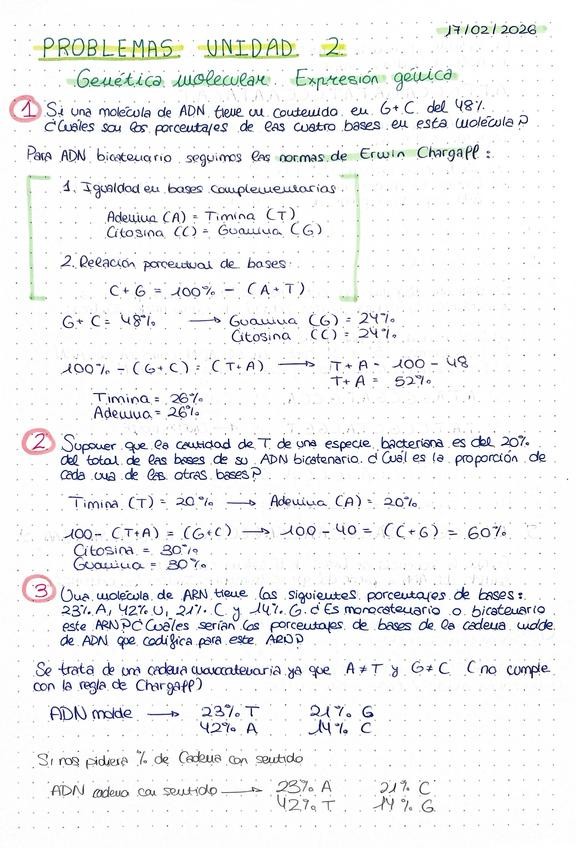 17/02/2026
PROBLEMAS UNIDAD 2
Genética molecular. Expresión génica
1 Si una molécula de ADN tiene un contenido en G+C del 48%
¿Cuáles son los porcentajes de las cuatro bases en esta molécula?
Para ADN bicatenario seguimos las normas de Erwin Chargaff:
1. Igualdad en bases complementarias
Adenina (A) = Timina (T)
Citosina (C) = Guanina (G)
2. Relación porcentual de bases
C+G = 100% - (A+T)
G+C = 48% → Guanina (G) = 24%
Citosina (C) = 24%
100% - (G+C) = (T+A) → T+A = 100 - 48
T+A = 52%
Timina = 26%
Adenina = 26%
2 Suponer que la cantidad de T de una especie bacteriana es del 20%
del total de las bases de su ADN bicatenario. ¿Cuál es la proporción de
cada una de las otras bases?
Timina (T) = 20% → Adenina (A) = 20%
100 - (T+A) = (G+C) → 100 - 40 = (C+G) = 60%
Citosina = 30%
Guanina = 30%
3 Una molécula de ARN tiene los siguientes porcentajes de bases:
23% A, 42% U, 21% C y 14% G. ¿Es monocatenario o bicatenario
este ARN? ¿Cuáles serían los porcentajes de bases de la cadena molde
de ADN que codifica para este ARN?
Se trata de una cadena monocatenaria ya que A≠T y G≠C (no cumple
con la regla de Chargaff)
ADN molde → 23% T 21% G
42% A 14% C
Si nos pidiera % de cadena con sentido
ADN cadena con sentido → 23% A 21% C
42% T 14% G